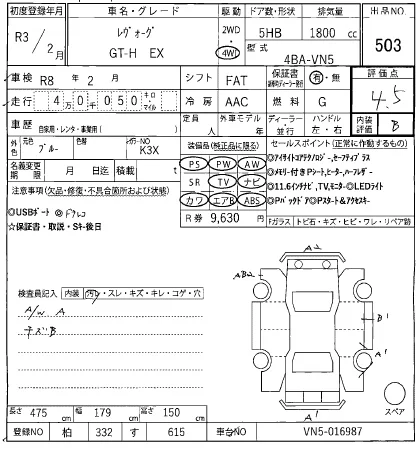 初度登録年月 車名・グレード 駆動 ドア数・形状 排気量 出品NO
R3/2月 レヴォーグ GT-H EX 2WD・4W 5HB 1800cc 503
型式 4BA-VN5
車検 R8年2月 シフト FAT 保証書 有・無 評価点 4.5
走行 4万0050 キロ・マイル 冷房 AAC 燃料 G
車歴 自家用・レンタ・事業用( ) 定員 人 外車モデル 年 ディーラー・並行 ハンドル 左・右 内装評価 B
外色 元色 ブルー 色替 カラーNO K3X
装備品(純正品に限る) セールスポイント(正常に作動するもの)
名義変更期限 月 日迄 積載 t
PS PW AW
SR TV ナビ
カワ エアB ABS
R券 9,630円
◎アイサイトXテクノロジー,セーフティプラス
◎メモリー付きPシート,ヒーター,ハーフレザー
◎11.6インチナビ,TV,モニター◎LEDライト
◎Pバックドア◎Pスタート&アクセスキー
注意事項(欠品・修復・不具合箇所および状態)
◎USBポート ◎ドラレコ
☆保証書・取説・Sキー後日
Fガラス トビ石・キズ・ヒビ・ワレ・リペア跡
検査員記入 内装 汚レ・スレ・キズ・キレ・コゲ・穴
A/W A
キズB
A2
AB2
B1
A1
A1
スペア
長さ 475cm 幅 179cm 高さ 150cm
登録NO 柏 332 す 615 車台NO VN5-016987